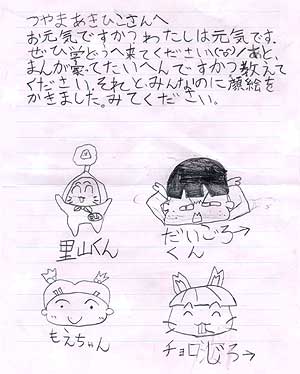 つやまあきひこさんへ
お元気ですかっわたしは元気です.
ぜひ学どうへ来てください(^o^)/あと、
まんが家ってたいへんですかっ教えて
ください.それと、みんなのに顔絵を
かきました。みてください。
里山くん
だいごろ→
くん
もえちゃん
チョロじろ→